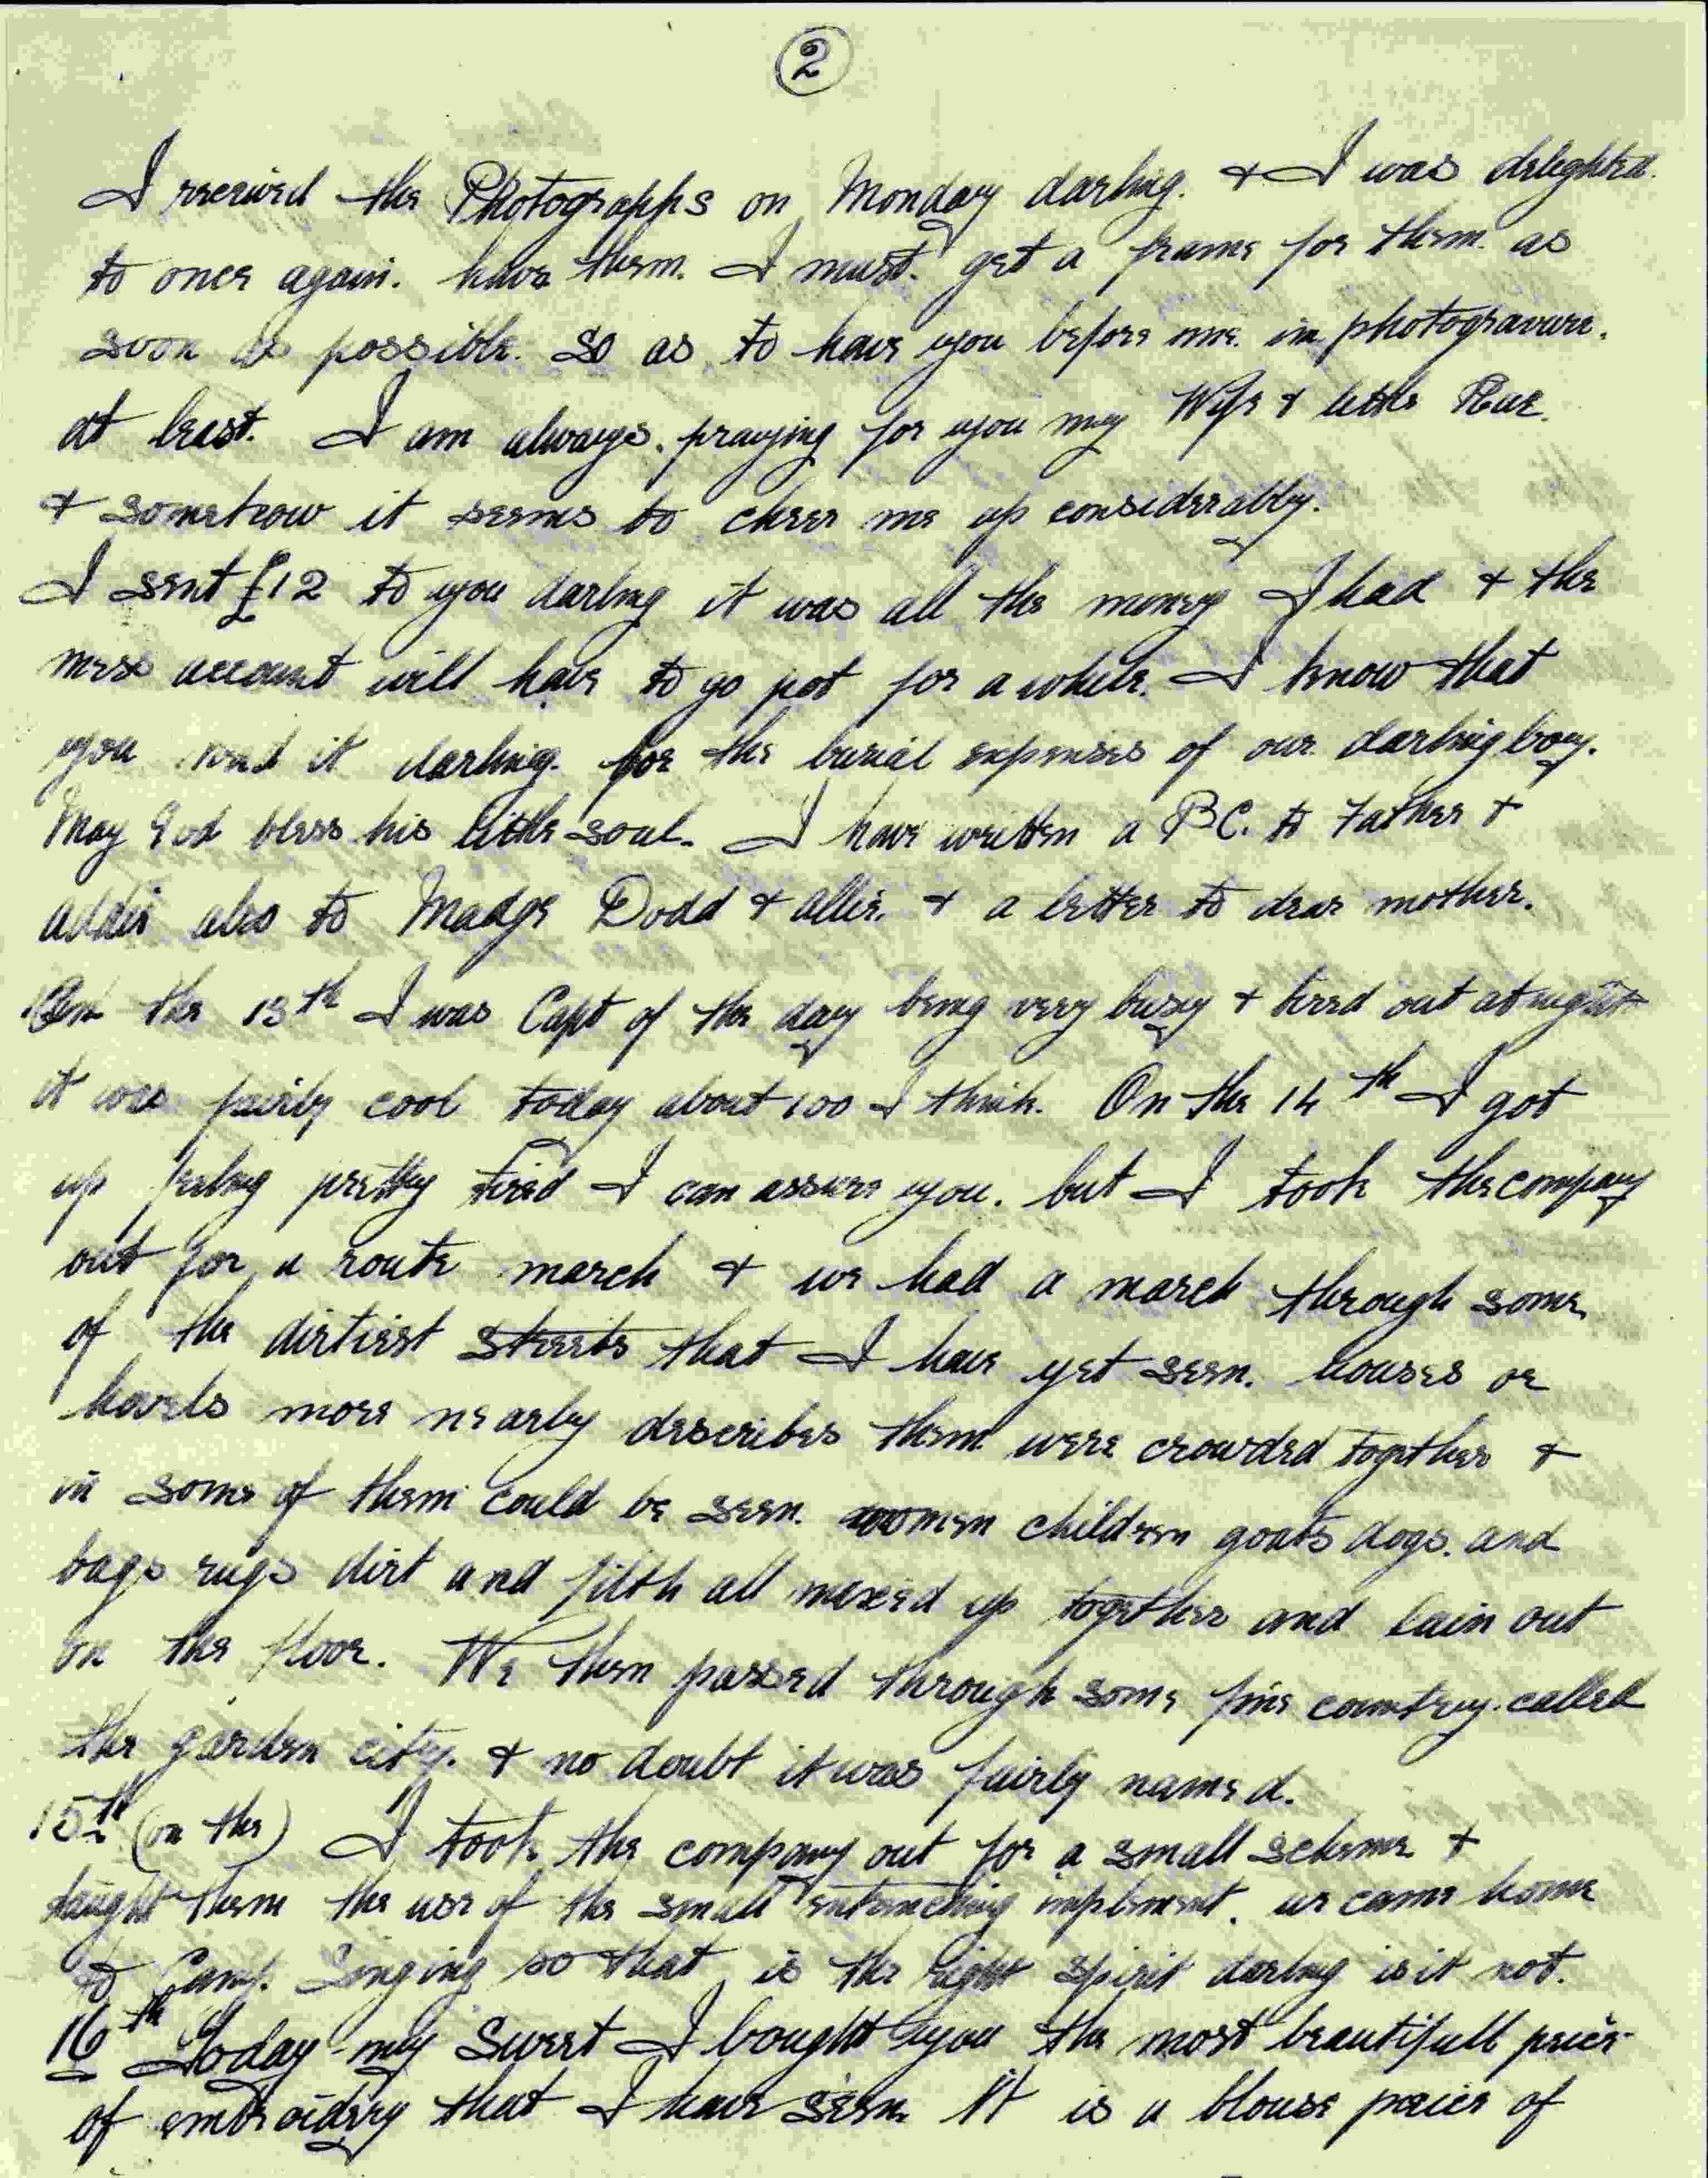 2
I received the Photographs on Monday darling. & I was delighted.
to once again. have them. I must. get a frame for them. as
soon as possible. so as to have you before me. in photogravure.
at least. I am always. praying for you my Wife & little Rue.
& somehow it seems to cheer me up considerably.
I sent £12 to you darling it was all the money I had & the
mess account will have to go pot for a while. I know that
you need it darling. for the burial expenses of our darling boy.
May God bless his little soul. I have written a P.C. to Father &
addie also to Madge Dodd & allie. & a letter to dear mother.
On the 13th I was Capt of the day being very busy & tired out at night
it was fairly cool today about 100 I think. On the 14th I got
up feeling pretty tired I can assure you. but I took the company
out for a route march & we had a march through some
of the dirtiest streets that I have yet seen. houses or
hovels more nearly describes them were crowded together &
in some of them could be seen. women children goats dogs. and
bags rugs dirt and filth all mixed up together and lain out
on the floor. We then passed through some fine country. called
the garden city. & no doubt it was fairly named.
15th (on the) I took the company out for a small scheme &
taught them the use of the small entrenching implement. we came home
to Camp. Singing so that is the right spirit darling is it not.
16th Today my Sweet I bought you the most beautifull peice
of embroidry that I have seen It is a blouse peice of